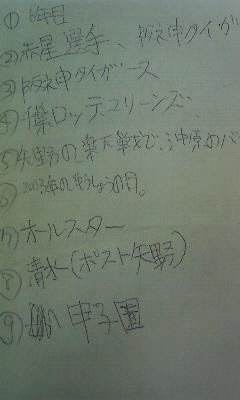 ① 6年目
② 赤星選手、阪神タイガ
③ 阪神タイガース
④ 千葉ロッテマリーンズ、
⑤ 矢野の楽天戦で、沖原のバ
⑥ 2003年のゆうしょうの日。
⑦ オールスター
⑧ 清水(ポスト矢野)
⑨ 甲子園